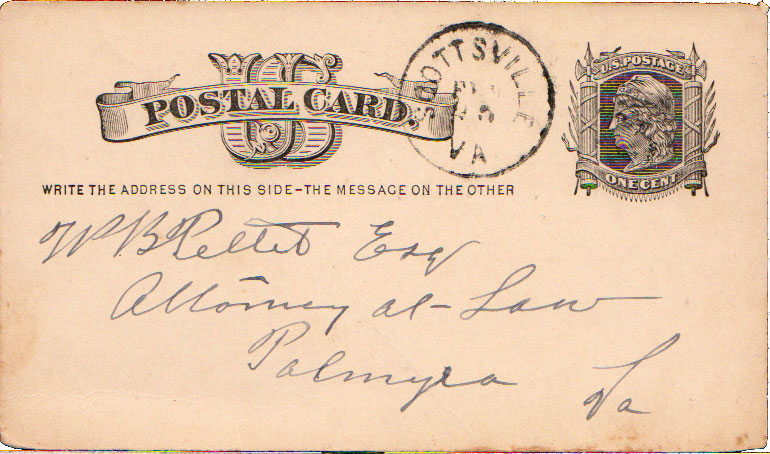 US
POSTAL CARD.
SCOTTSVILLE
VA
U.S. POSTAGE
ONE CENT
WRITE THE ADDRESS ON THIS SIDE-THE MESSAGE ON THE OTHER
W B Pettit Esq
Attorney at-Law
Palmyra Va